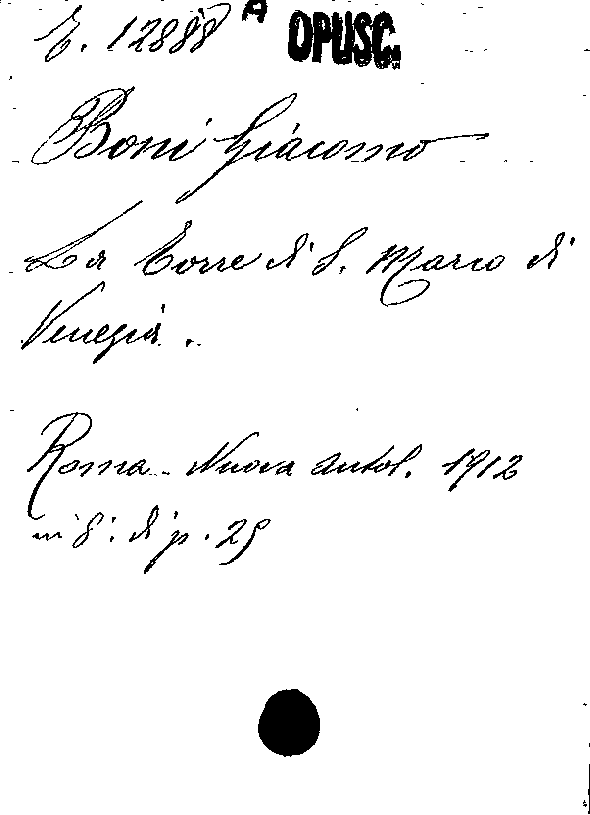 E. 12888 A OPUSC.
Boni Giacomo
La Torre di S. Marco di
Venezia.
Roma - Nuova Antol. 1912
in 8: di p. 29